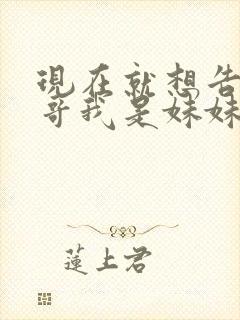 現在就想告
哥我是妹妹
蓮上君